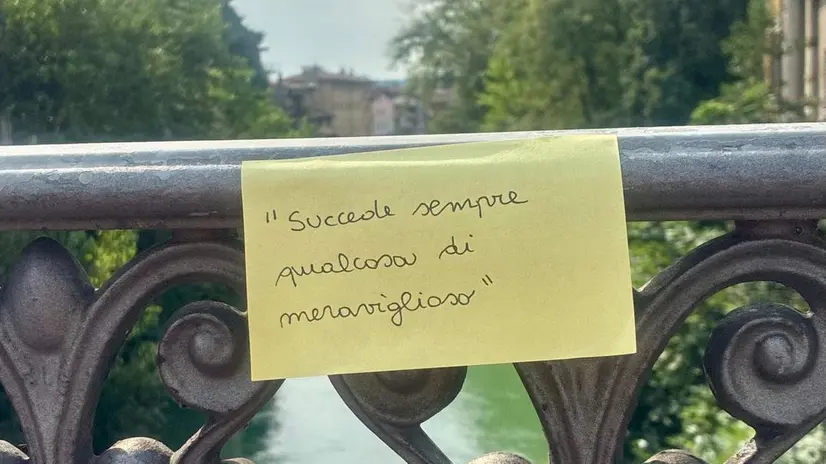 "Succede sempre
qualcosa di
meraviglioso"